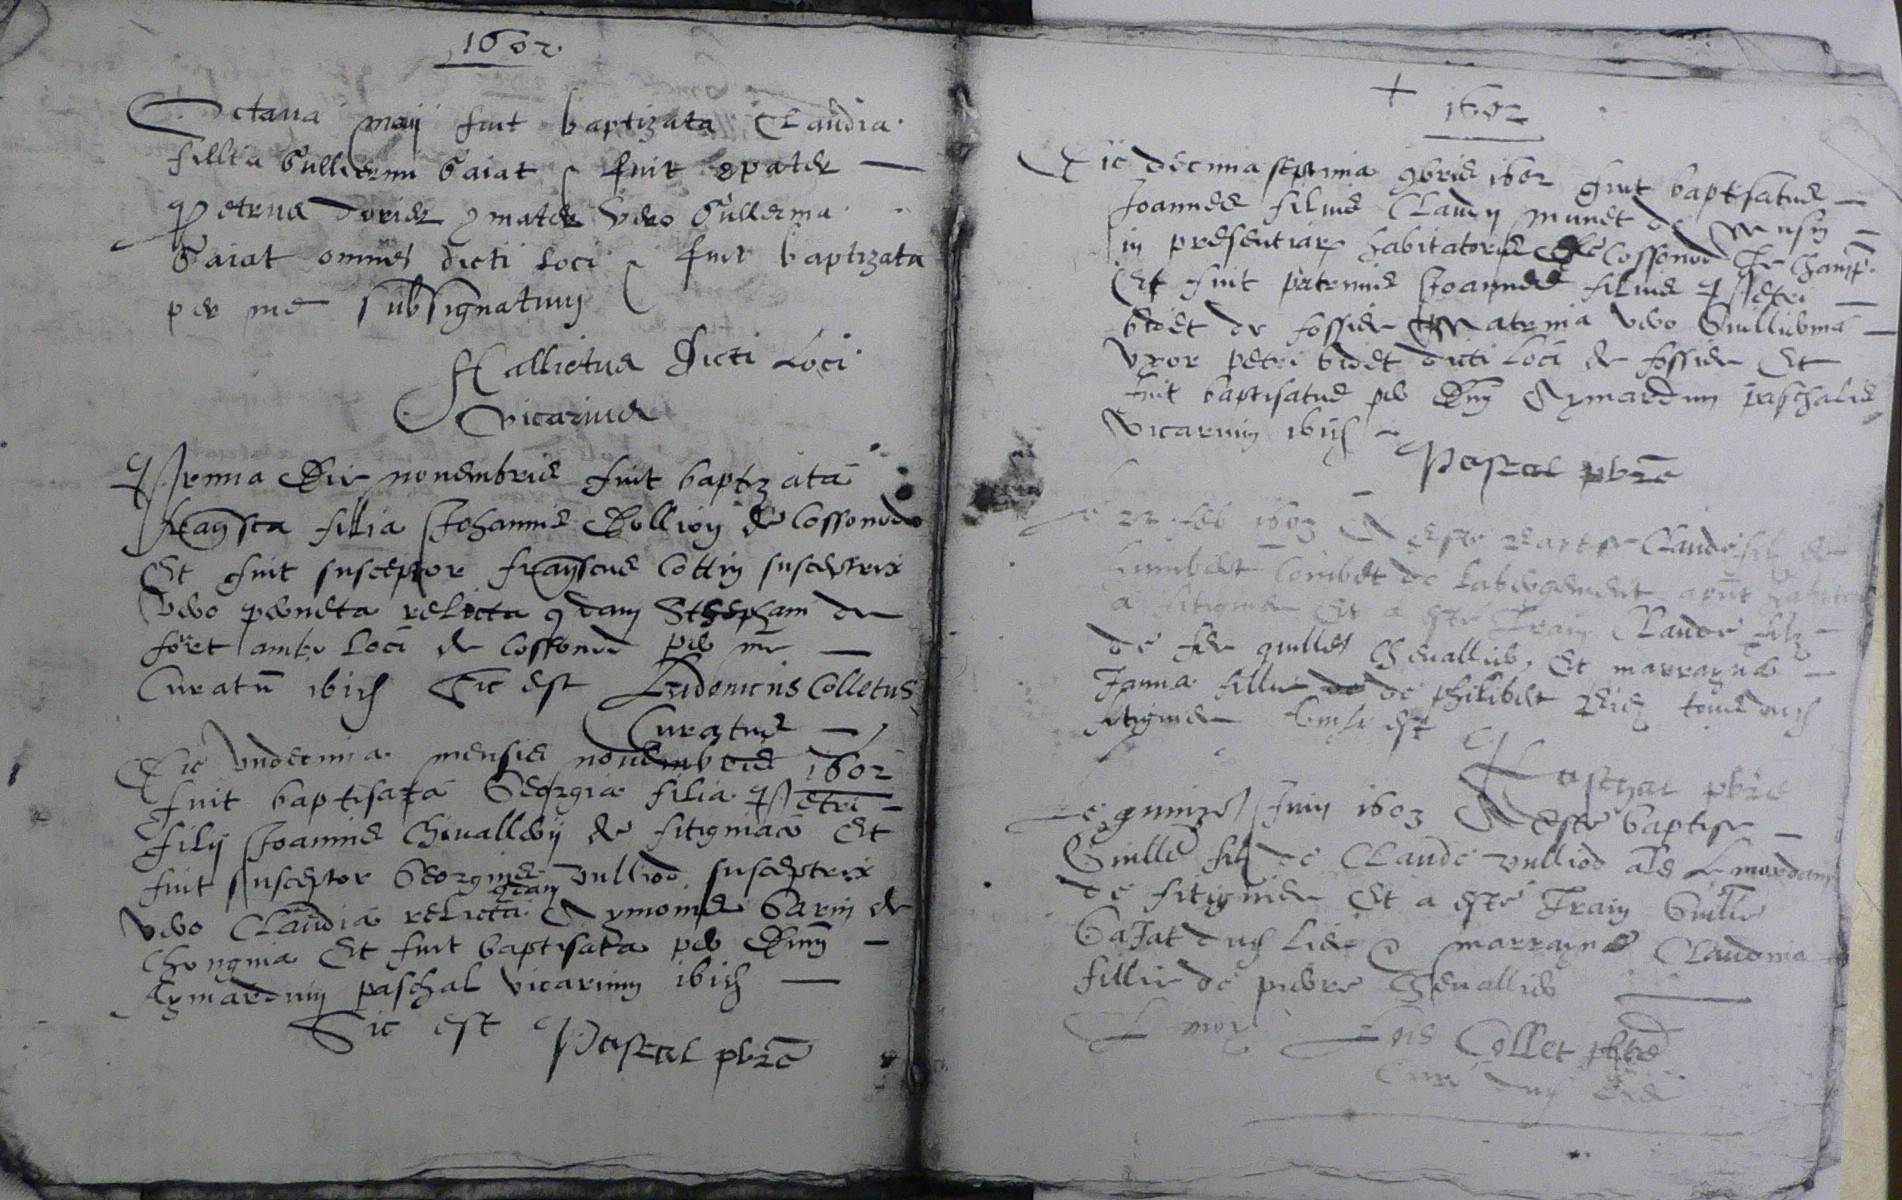 1602
Octava maij fuit baptizata Claudia
fillia Gullermi Gaiat fuit 9pater
Petrus durier 9mater Vero Gullerma
Gaiat omnes dicti loci fuit baptizata
per me subsignatum
dicti Loci
Vicarius
Prima Die novembris fuit baptizata
fransca filia Johannis Bollion de Cossonod
Et fuit susceptor franscus Cottin susceptrix
vero perneta relicta 9dam Stephani de
foret ambo loci de Cossonod per me
Curatu ibid Sic est Ludovicus Colletus
Curatus
Die Undecima mensis novembris 1602
fuit baptisata Georgia filia Petri
filij Joannis Chevallerij de fitigniaco Et
fuit susceptor Georgius Vulliod susceptrix
vero Claudia relicta qdam Aymonis Garin de
Chongnia Et fuit baptisata per Dnm
Aymardum paschal vicarium ibid
Sic est Pascal pbre
+ 1602
Die decima septima 9bris 1602 fuit baptisatus
Joannes filius Claudij munet de
in presentiar habitatoris de Cossonod
Et fuit patrinus Joannes filius Petri
bidet de fossier Matrina vero Guillierma
Uxor petri bidet dicti loci de fossier Et
fuit baptisatus per Dnm Aymardum paschalis
Vicarium ibid
Pascal pbre
Le 22 feb 1603 A este baptise Claude filz de
humbert Combet de
a fitignier Et a este Parain Claude filz
de feu guille Chevallier, Et marrayne
Janna fillie de philibert tous dud
fitignier Ainsi est
Paschal pbre
Le quinze Juin 1603 A este baptise
Guille filz de Claude vulliod als
de fitignier Et a este Parain Guille
Gajat dud lieu marrayne Claudina
fillie de pierre Chevallier
Lois Collet pbre
Cure dud lieu